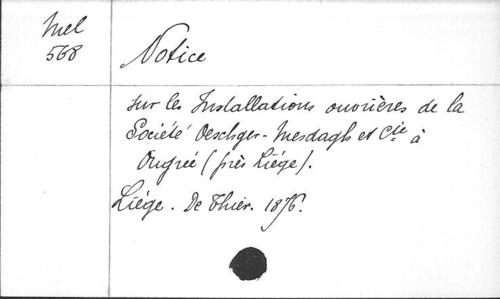 Mel
568
Notice
sur les Installations ouvrières de la
Société Oeschger-Mesdagh et Cie à
Ougrée (près Liége).
Liége. De Thier. 1876.